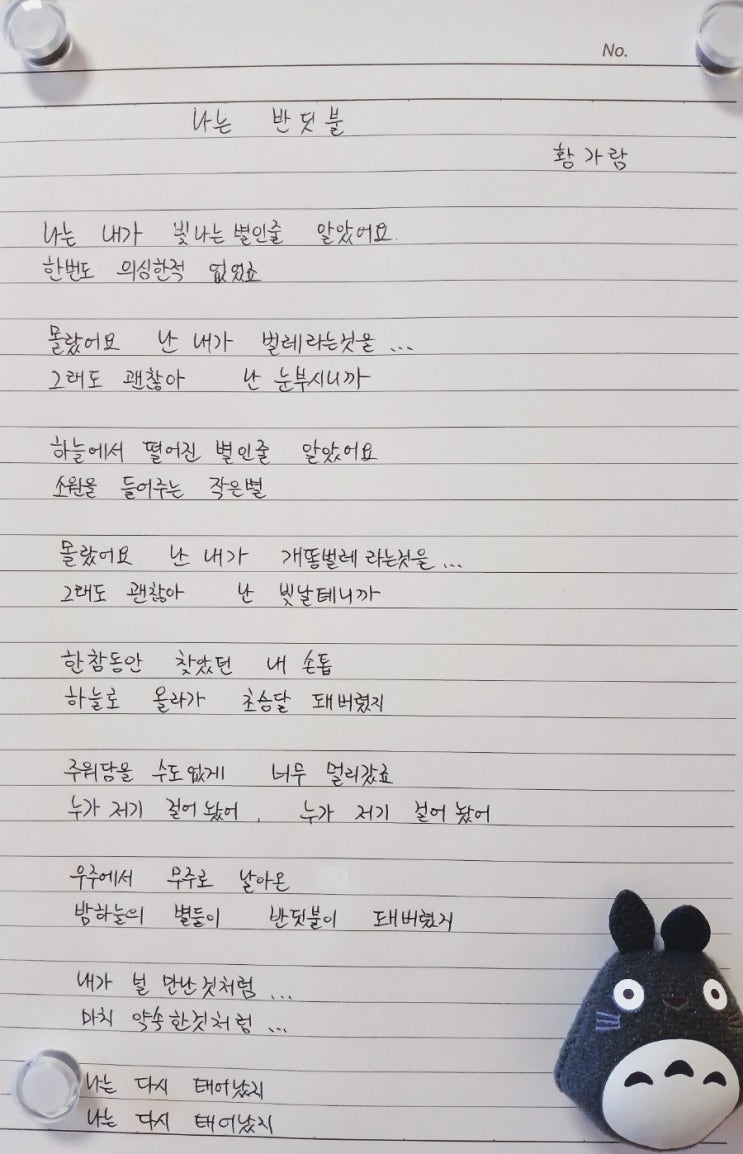 No.
나는 반딧불
황가람
나는 내가 빛나는 별인줄 알았어요.
한번도 의심한적 없었죠
몰랐어요 난 내가 벌레라는것을 ...
그래도 괜찮아 난 눈부시니까
하늘에서 떨어진 별인줄 알았어요
소원을 들어주는 작은별
몰랐어요 난 내가 개똥벌레 라는것을 ...
그래도 괜찮아 난 빛날테니까
한참동안 찾았던 내 손톱
하늘로 올라가 초승달 돼버렸지
주워담을 수도없게 너무 멀리갔죠
누가 저기 걸어놨어, 누가 저기 걸어놨어
우주에서 무주로 날아온
밤하늘의 별들이 반딧불이 돼버렸지
내가 널 만난것처럼 ...
마치 약속한것처럼 ...
나는 다시 태어났지
나는 다시 태어났지